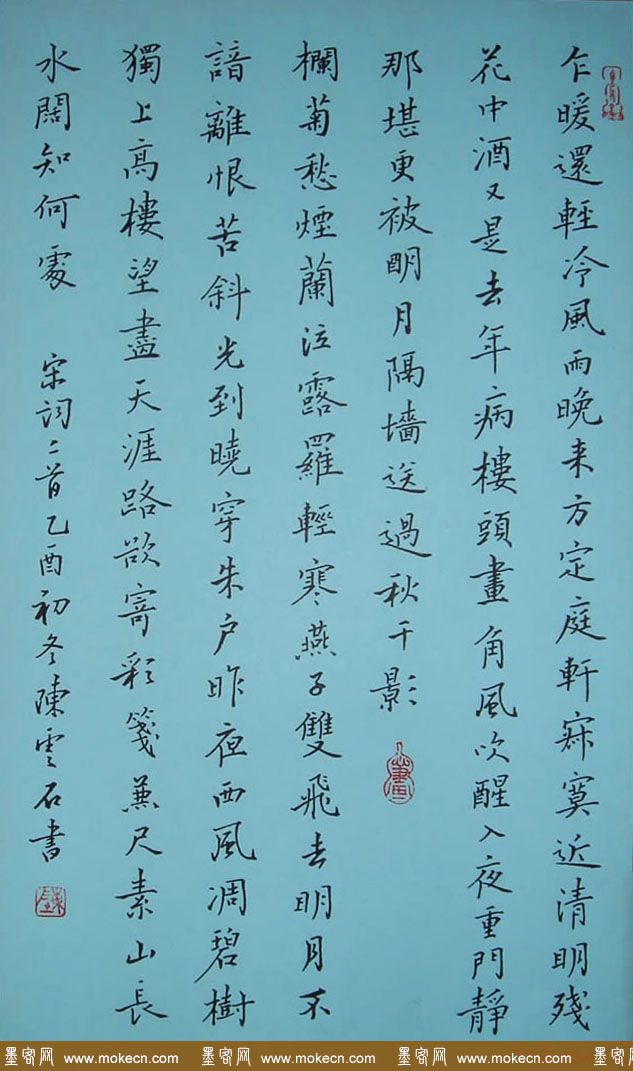 乍暖還輕冷風雨晚来方定庭軒寂寞近清明残
花中酒又是去年病樓頭畫角風吹醒入夜重門靜
那堪更被明月隔墻送過秋千影
欄菊愁煙蘭泣露羅輕寒燕子雙飛去明月不
諳離恨苦斜光到曉穿朱户昨夜西風凋碧樹
獨上高樓望盡天涯路欲寄彩箋兼尺素山長
水闊知何處 宋詞二首乙酉初冬陳雲石書
墨客网 www.mokecn.com 墨客网 www.mokecn.com 墨客网 www.mokecn.com 墨客网